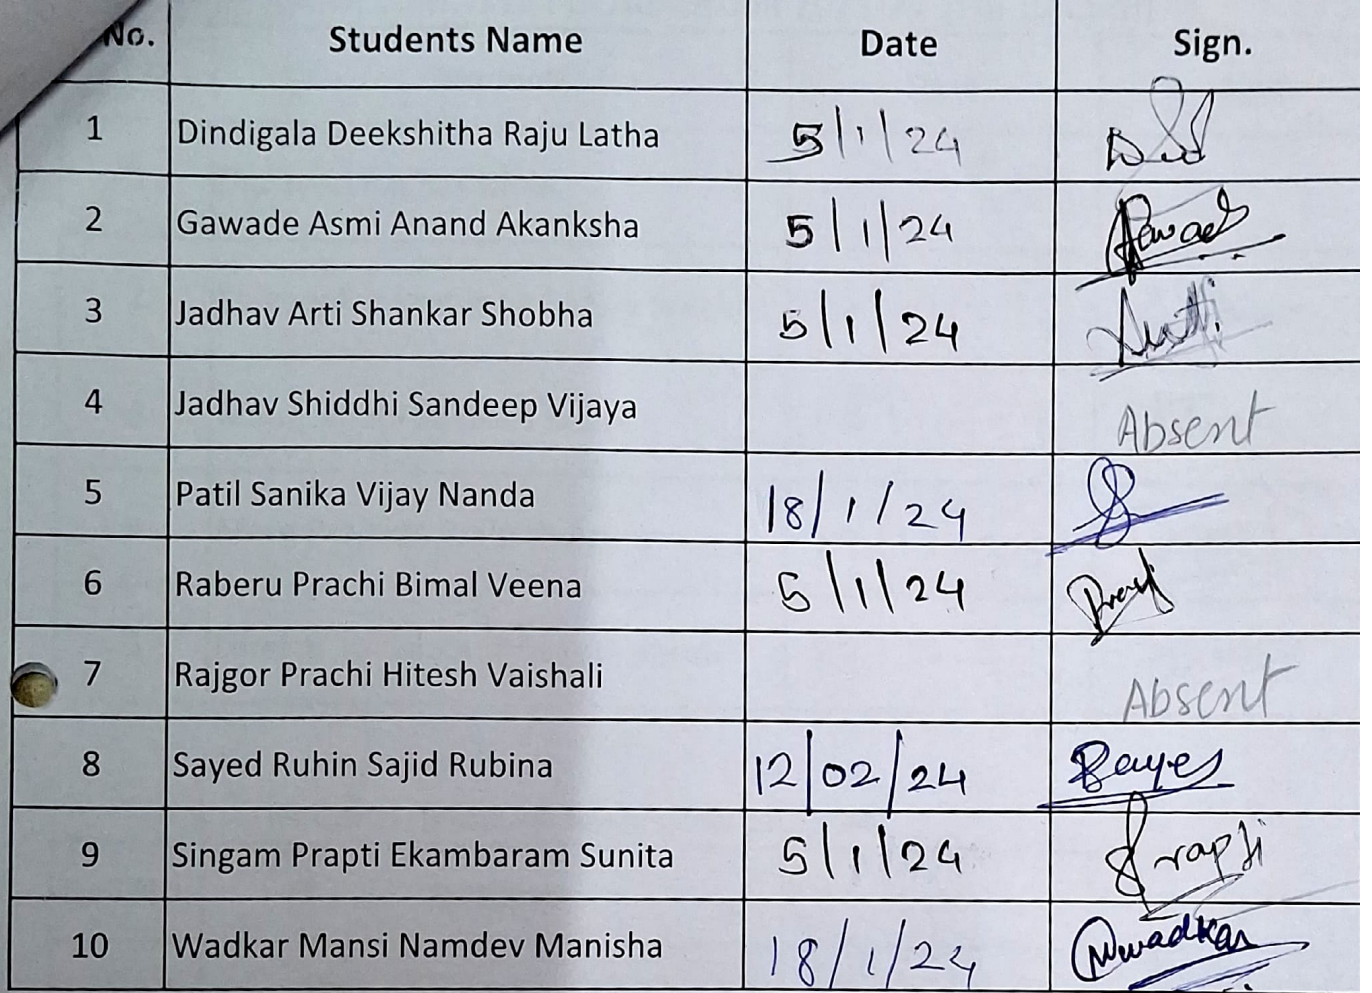 No. Students Name Date Sign.
1 Dindigala Deekshitha Raju Latha 5/1/24
2 Gawade Asmi Anand Akanksha 5/1/24
3 Jadhav Arti Shankar Shobha 5/1/24
4 Jadhav Shiddhi Sandeep Vijaya Absent
5 Patil Sanika Vijay Nanda 18/1/24
6 Raberu Prachi Bimal Veena 5/1/24
7 Rajgor Prachi Hitesh Vaishali Absent
8 Sayed Ruhin Sajid Rubina 12/02/24
9 Singam Prapti Ekambaram Sunita 5/1/24 Prapti
10 Wadkar Mansi Namdev Manisha 18/1/24